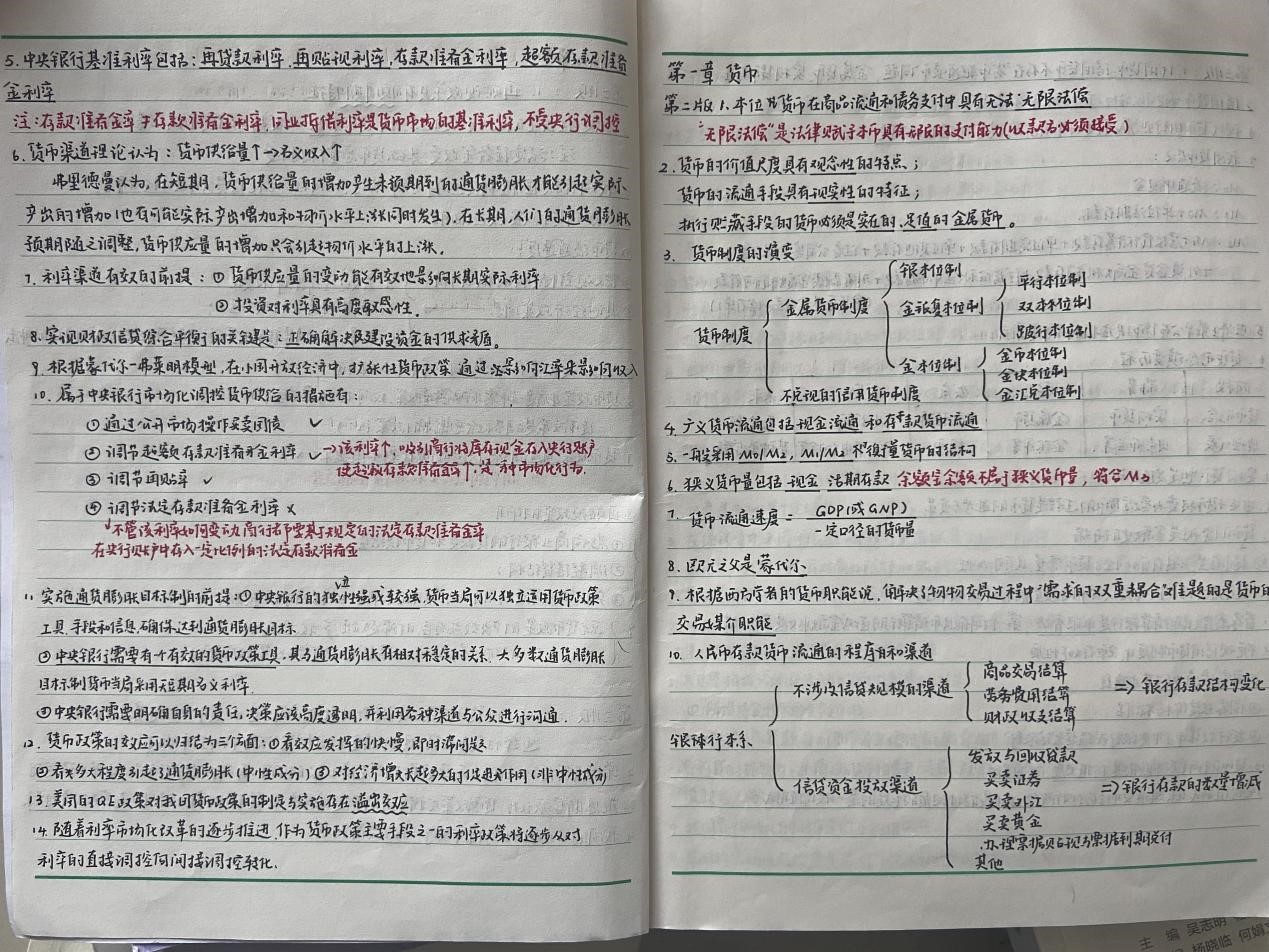 5. 中央银行基准利率包括：再贷款利率，再贴现利率，存款准备金利率，超额存款准备
金利率
注：存款准备金率≠存款准备金利率，同业拆借利率是货币市场的基准利率，不受央行调控
6. 货币渠道理论认为：货币供给量↑→名义收入↑
弗里德曼认为，在短期，货币供给量的增加产生未预期到的通货膨胀才能引起实际
产出的增加（也有可能实际产出增加和物价水平上涨同时发生）。在长期，人们的通货膨胀
预期随之调整，货币供应量的增加只会引起物价水平的上涨。
7. 利率渠道有效的前提：① 货币供应量的变动能有效地影响长期实际利率
② 投资对利率具有高度敏感性。
8. 实现财政信贷综合平衡的关键是：正确解决建设资金的供求矛盾。
9. 根据蒙代尔—弗莱明模型，在小国开放经济中，扩张性货币政策通过影响汇率来影响收入
10. 属于中央银行市场化调控货币供给的措施有：
①通过公开市场操作买卖国债 ✓
②调节超额存款准备金利率 ✓→该利率↑，吸引商行将库存现金存入央行账户
使超额存款准备金率↑，是一种市场化行为.
③调节再贴率 ✓
④调节法定存款准备金利率 ×
↓不管该利率如何变动商行都要基于规定的法定存款准备金率
在央行账户中存入一定比例的法定存款准备金
11. 实施通货膨胀目标制的前提：①中央银行的独立性强或较强，货币当局可以独立运用货币政策
工具、手段和信息，确保达到通货膨胀目标
②中央银行需要有个有效的货币政策工具，其与通货膨胀有相对稳定的关系，大多数通货膨胀
目标制货币当局采用短期名义利率.
③中央银行需要明确自身的责任，决策应该高度透明，并利用各种渠道与公众进行沟通.
12. 货币政策的效应可以归结为三个方面：①看效应发挥的快慢，即时滞问题
②看多大程度引起了通货膨胀（中性成分）③对经济增长起多大的促进作用（非中性成分）
13. 美国的QE政策对我国货币政策的制定与实施存在溢出效应
14. 随着利率市场化改革的逐步推进，作为货币政策主要手段之一的利率政策将逐步从对
利率的直接调控向间接调控转化.
第一章 货币
第二版 1. 本位币货币在商品流通和债务支付中具有无法 无限法偿
“无限法偿”是法律赋予本币具有无限的支付能力（收款者必须接受）
2. 货币的价值尺度具有观念性的特点；
货币的流通手段具有现实性的特征；
执行贮藏手段的货币必须是实在的、足值的金属货币。
3. 货币制度的演变
货币制度
金属货币制度
银本位制
金银复本位制
平行本位制
双本本位制
跛行本位制
金本位制
金币本位制
金块本位制
金汇兑本位制
不兑现的信用货币制度
4. 广义货币流通包括现金流通和存款货币流通
5. 一般采用 M0/M2，M1/M2 来衡量货币的结构
6. 狭义货币量包括 现金 活期存款 余额宝余额不属于狭义货币量，符合M2
7. 货币流通速度 = GDP(或GNP)
一定口径的货币量
8. 欧元之父是蒙代尔
9. 根据西方学者的货币职能说，解决了物物交易过程中“需求的双重耦合”难题的是货币的
交易媒介职能
10. 人民币存款货币流通的程序和渠道
银行体系
不涉及信贷规模的渠道
商品交易结算
劳务费用结算
财政收支结算
=> 银行存款结构变化
信贷资金投放渠道
发放与回收贷款
买卖证券
买卖外汇
买卖黄金
办理票据贴现与票据到期兑付
其他
=> 银行存款的数量增减
主 编 吴志明
杨晓临 何娟